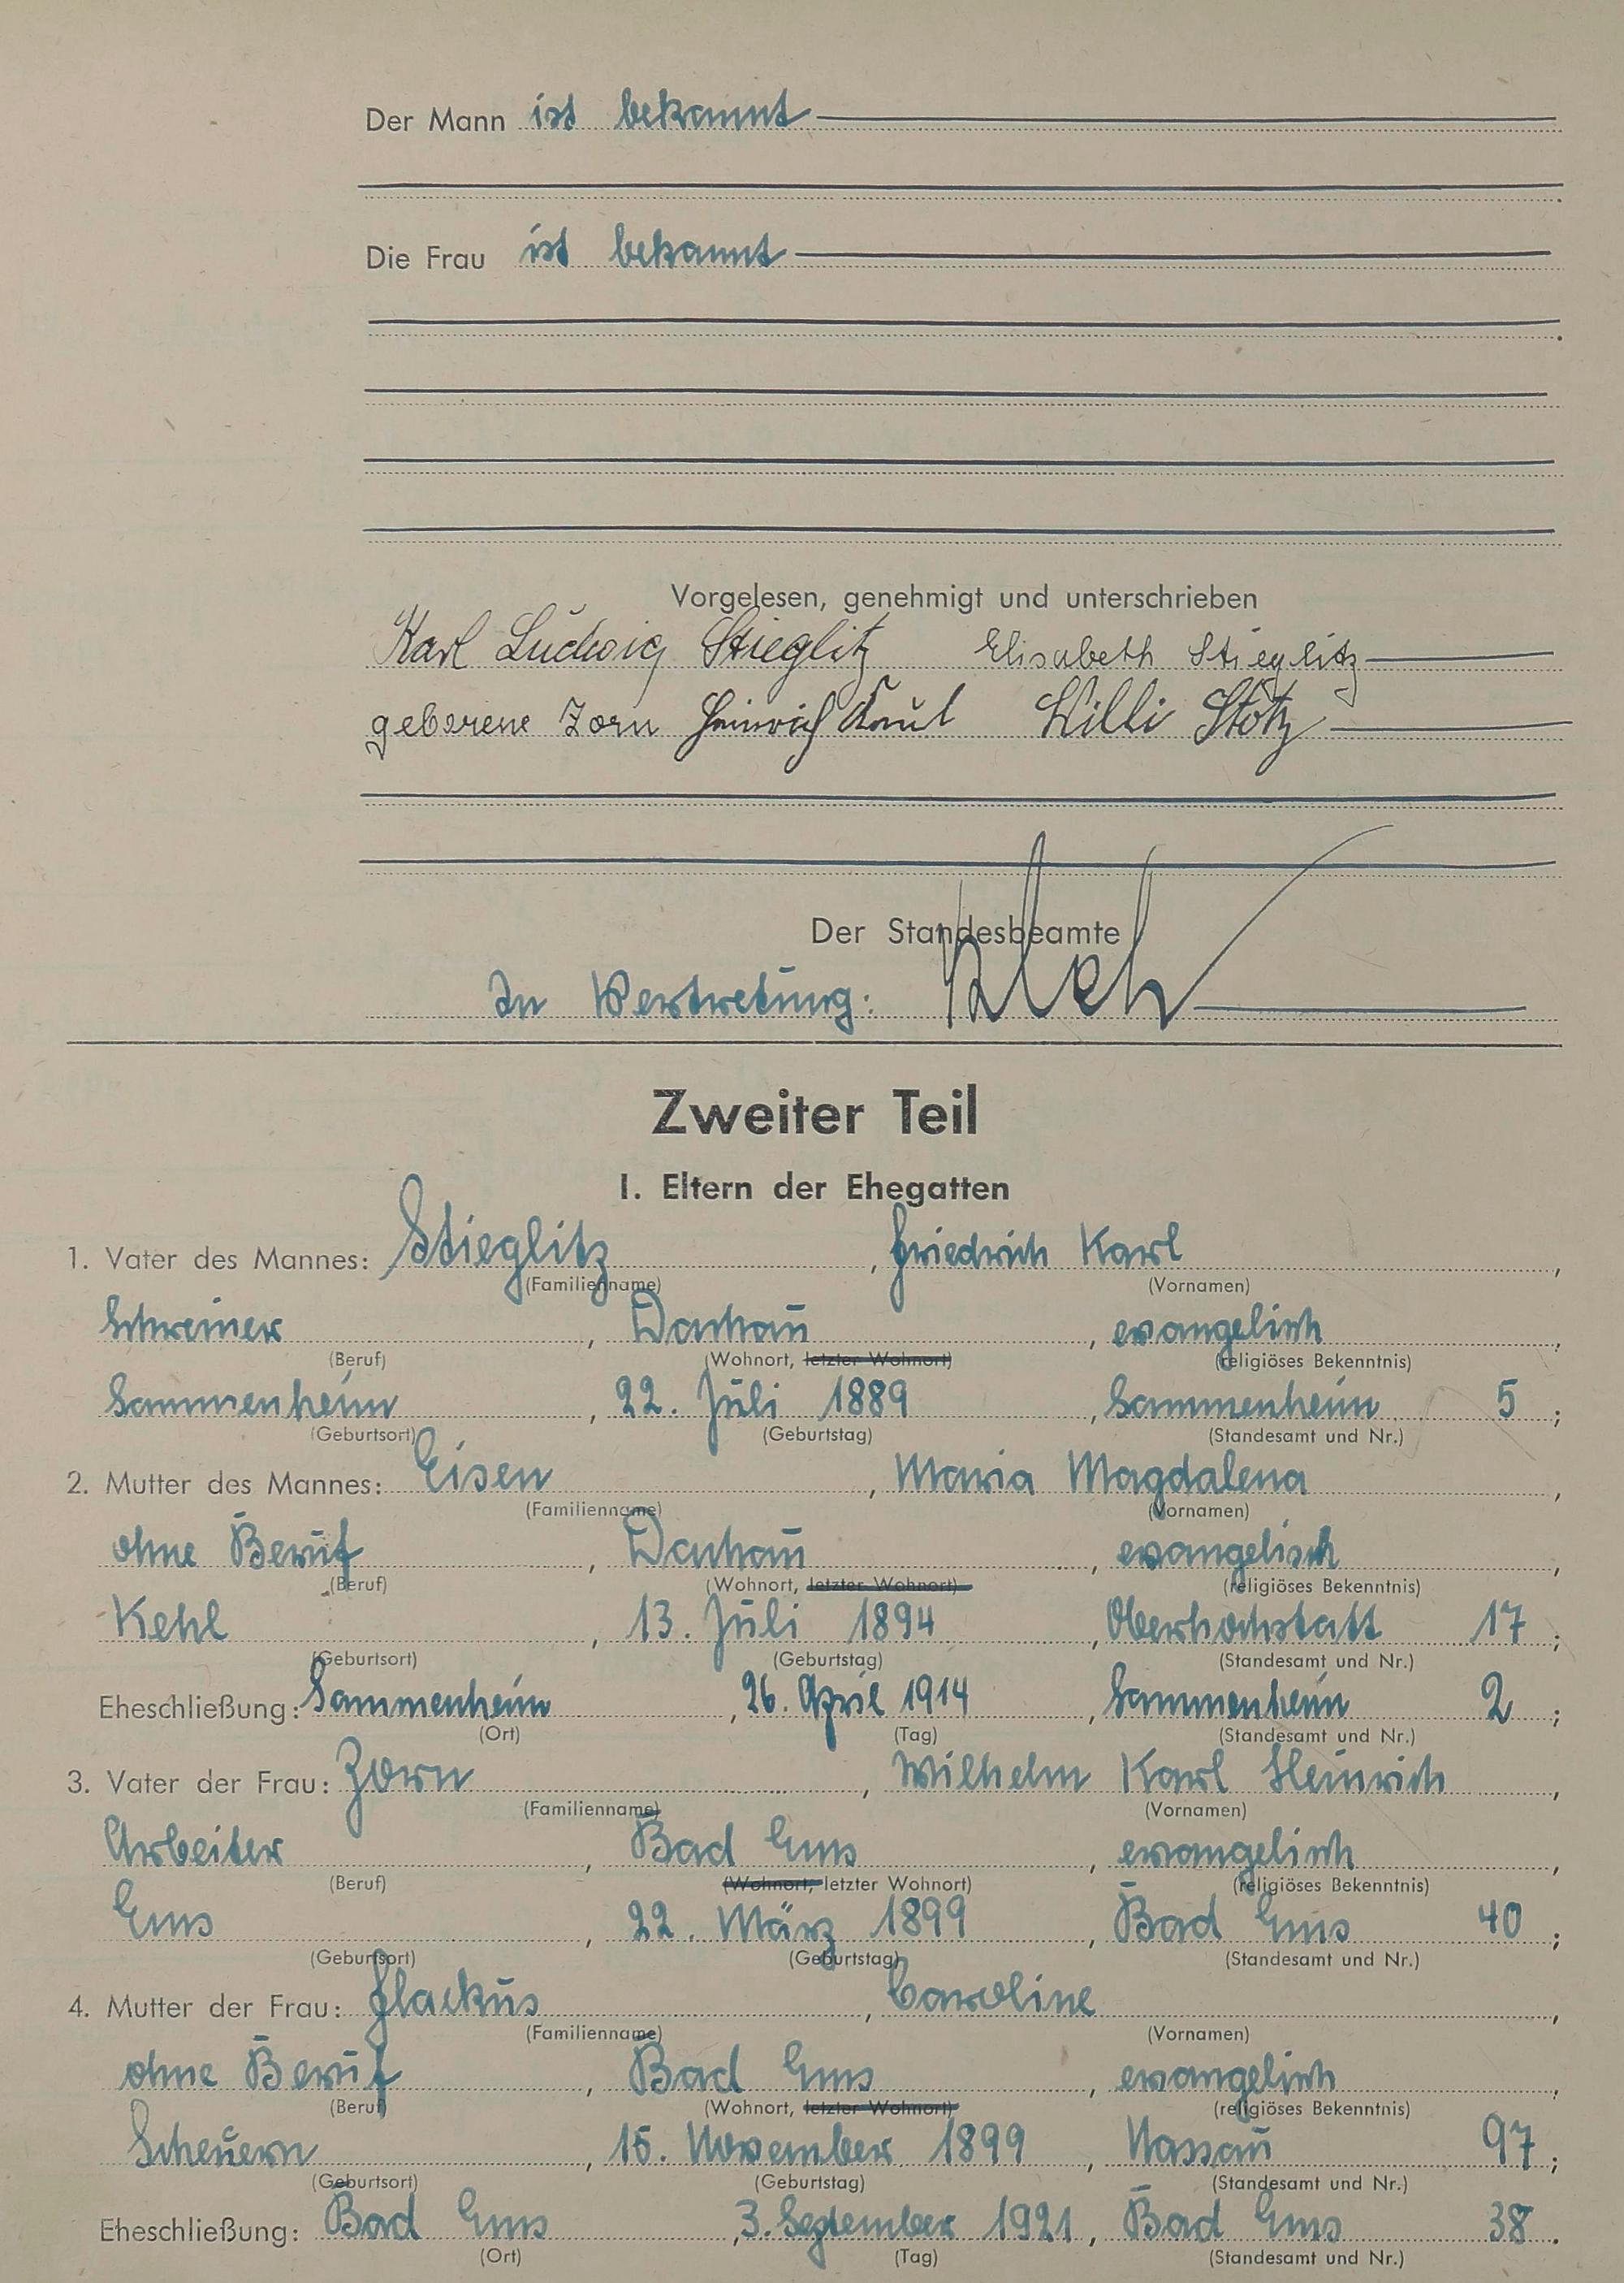 Der Mann ist bekannt
Die Frau ist bekannt
Vorgelesen, genehmigt und unterschrieben
Karl Ludwig Stieglitz Elisabeth Stieglitz
geborene Zorn Heinrich Kaul Willi Stotz
Der Standesbeamte
In Vertretung:
Zweiter Teil
I. Eltern der Ehegatten
1. Vater des Mannes: Stieglitz, Friedrich Karl,
(Familienname) (Vornamen)
Schreiner, Dachau, evangelisch,
(Beruf) (Wohnort, letzter Wohnort) (religiöses Bekenntnis)
Sammenheim, 22. Juli 1889, Sammenheim 5;
(Geburtsort) (Geburtstag) (Standesamt und Nr.)
2. Mutter des Mannes: Eisen, Maria Magdalena,
(Familienname) (Vornamen)
ohne Beruf, Dachau, evangelisch,
(Beruf) (Wohnort, letzter Wohnort) (religiöses Bekenntnis)
Kehl, 13. Juli 1894, Oberhochstatt 17;
(Geburtsort) (Geburtstag) (Standesamt und Nr.)
Eheschließung: Sammenheim, 26. April 1914, Sammenheim 2;
(Ort) (Tag) (Standesamt und Nr.)
3. Vater der Frau: Zorn, Wilhelm Karl Heinrich,
(Familienname) (Vornamen)
Arbeiter, Bad Ems, evangelisch,
(Beruf) (Wohnort, letzter Wohnort) (religiöses Bekenntnis)
Ems, 22. März 1899, Bad Ems 40;
(Geburtsort) (Geburtstag) (Standesamt und Nr.)
4. Mutter der Frau: Flackus, Caroline,
(Familienname) (Vornamen)
ohne Beruf, Bad Ems, evangelisch,
(Beruf) (Wohnort, letzter Wohnort) (religiöses Bekenntnis)
Scheuern, 15. November 1899, Nassau 97;
(Geburtsort) (Geburtstag) (Standesamt und Nr.)
Eheschließung: Bad Ems, 3. September 1921, Bad Ems 38.
(Ort) (Tag) (Standesamt und Nr.)